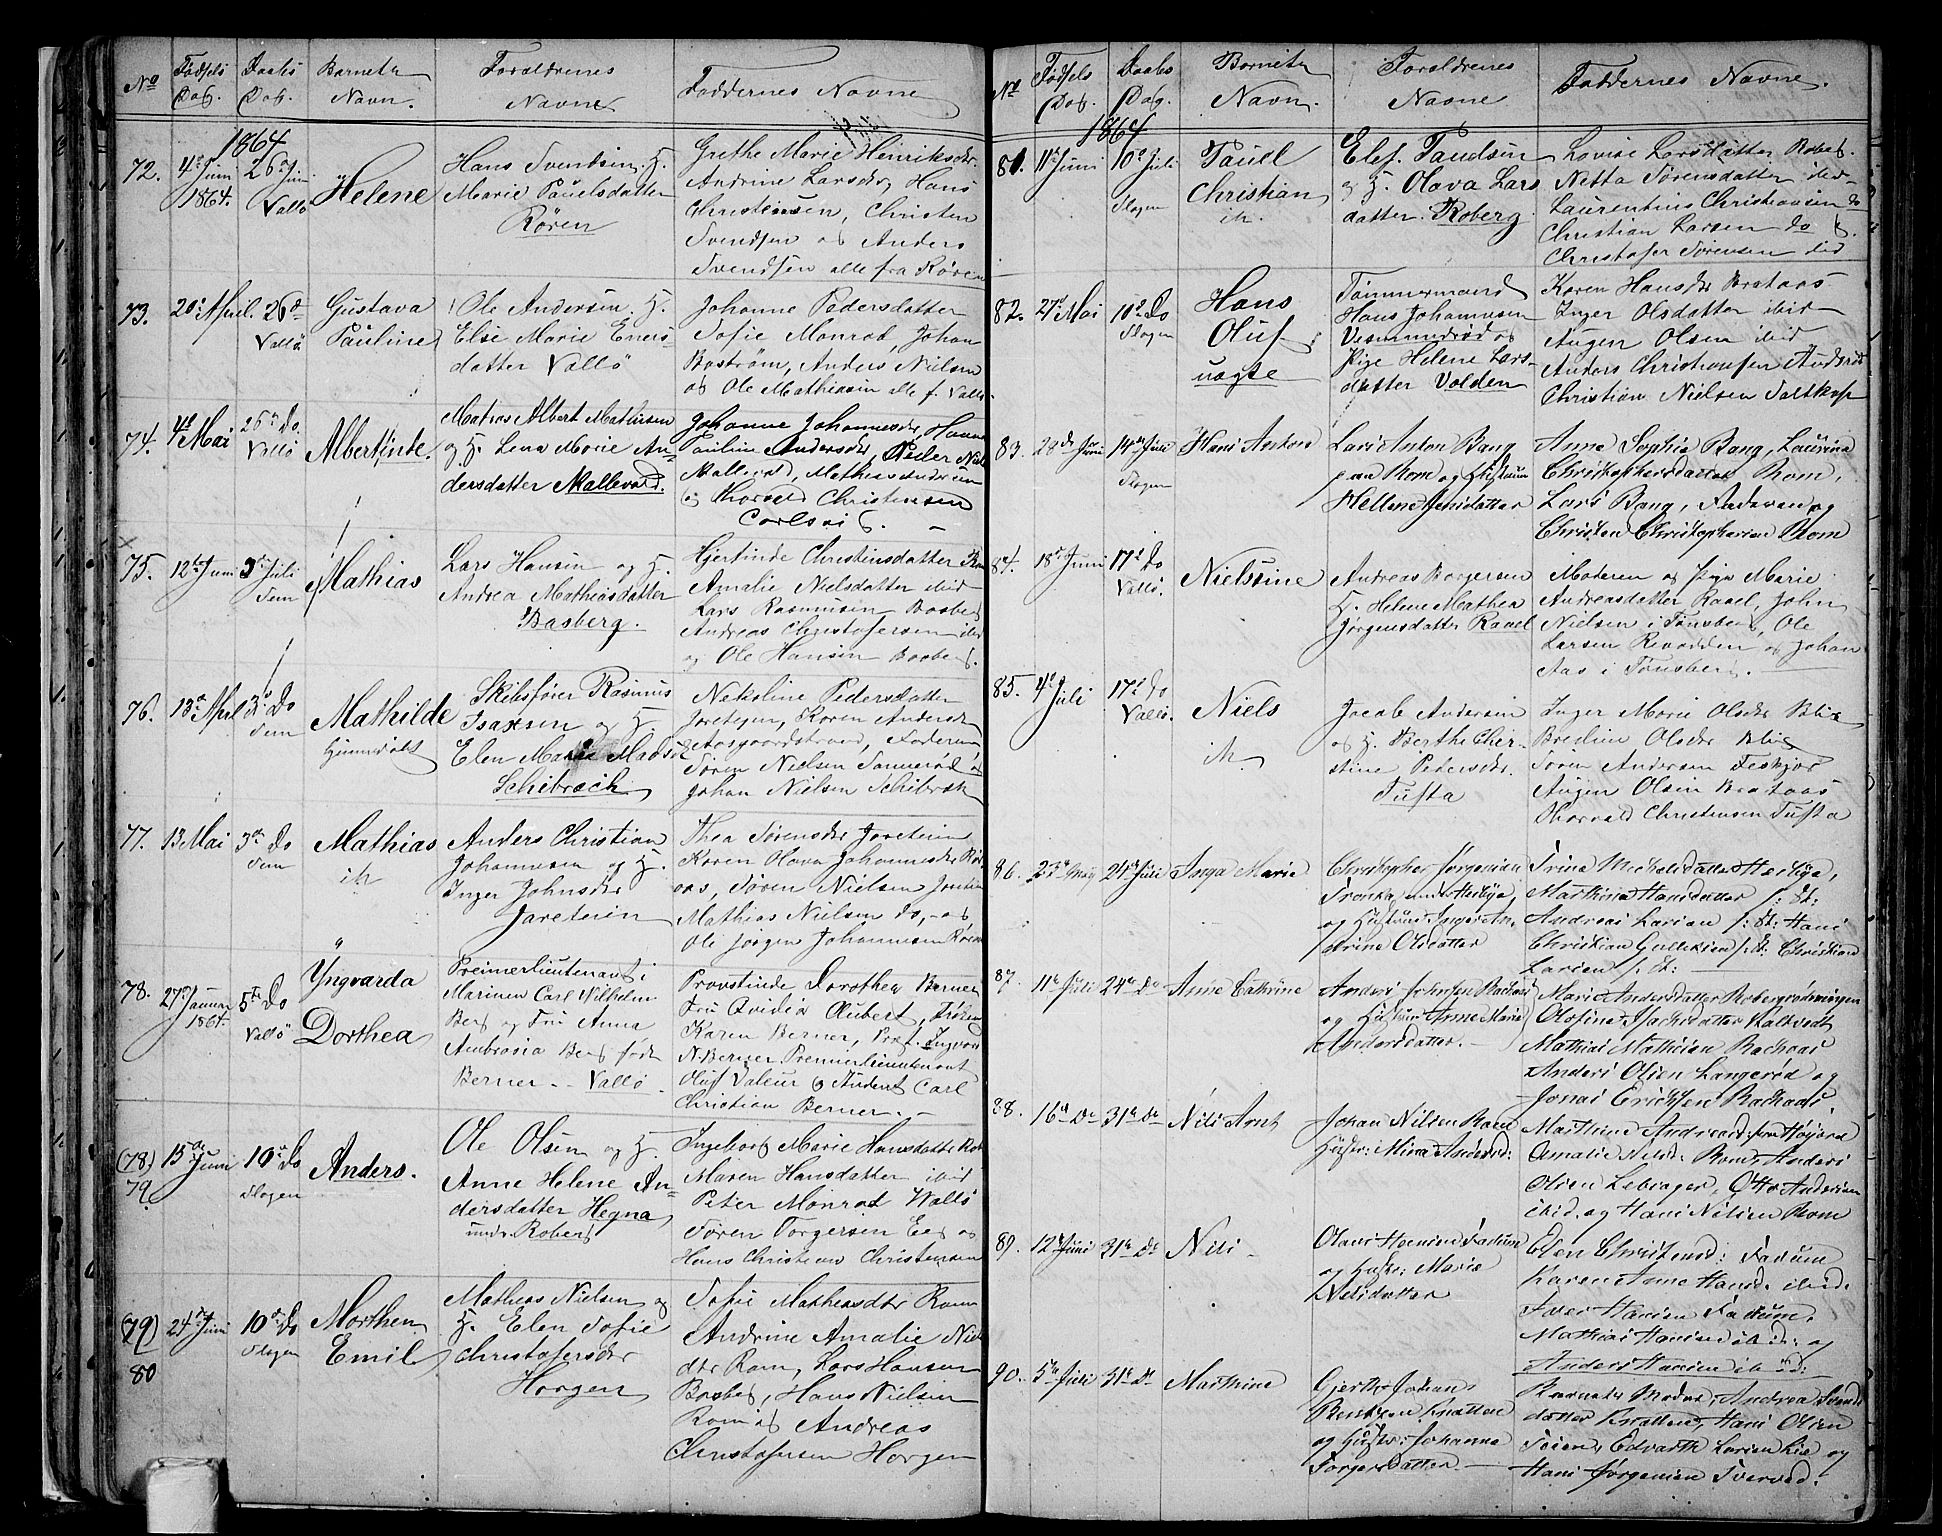 No Fødsels Dag. Daabs Dag. Barnets Navn. Forældrenes Navne Faddernes Navne
1864
72. 4de Juni 1864. 26de Juni Vallö Helene
Hans Svendsen, H.
Marie Pauelsdatter
Rören
Grethe Marie Henriksdr
Andrine Larsdr, Hans
Christensen, Christen
Svendsen og Anders
Svendsen alle fra Rören
73. 20de April 26de Vallö Gustava Pauline
Ole Andersen. H.
Else Marie
datter Vallö
Johanne Pedersdatter
Sofie Monrad, Johan
Boström, Anders Nielsen
og Ole Mathiasen alle f. Vallö
74. 4de Mai 26de Do Vallö Albertine.
Matros Albert Mathisen
og H. Lena Marie An-
dersdatter Mallevold.
Johanne Johannesdr
Pauline Andersdr, Peder
Mallevold, Mathias Andersen
og Thorvald Christensen
75. 12te Juni 3de Juli Sem Mathias
Lars Hansen og H.
Andrea Mathiasdatter
Basberg.
Hjertinde Christinsdatter
Amalie Nielsdatter ibid
Lars Rasmusen Basberg
Andreas Christofersen ibid
og Ole Hansen Basberg.
76. 13de April 3de Do Sem Mathilde
hjemmedöbt
Skibsförer Rasmus
Isaksen og H.
Elen Marie Mads
Schibrech
Nekoline Pedersdatter
Jareteien, Karen Andersdr
Aasgaardstrand, Faderen
Sören Nielsen
Johan Nielsen Schibrek
77. 13 Mai 3de Do Sem Mathias
Anders Christian
Johannesen og H.
Inger Johnsdr
Jareteien
Thea Sörensdr Jareteien
Karen Olava Johannesdr
Sören Nielsen
Mathias Nielsen Do, og
Ole Jörgen Johannesen Rören
78. 27de Januar 1864. 5te Do Vallö Yngvarda Dorthea
Premierlieutenant i
Marinen Carl Wilhelm
Berg og Fru Anna
Ambrosia Berg född
Berner - Vallö
Provstinde Dorothea Berner
Fru Ovidia Aubert, Fröken
Karen Berner, Prof. Ingvar
N. Berner. Premierlieutenant
Oluf Valeur og Student Carl
Christian Berner.
(78) 79 15de Juni 10de Do Slagen Anders.
Ole Olsen og H.
Anne Helene An-
dersdatter Hegna
under Roberg
Ingeborg Marie Hansdatter
Maren Hansdatter ibid
Peter Monrad Vallö
Sören Torgersen Eeg og
Hans Christian Christensen
(79) 80 24de Juni 10de Do Slagen Morthen Emil
Mathias Nielsen og
H. Elen Sofie
Christofersdr
Horgen
Sofie Mathiasdtr Rom
Andrine Amalie Niels
dtr Rom, Lars Hansen
Basberg, Hans Nielsen
Rom og Andreas
Christofersen Horgen
No Fødsels Dag. Daabs Dag. Barnets Navn. Forældrenes Navne Faddernes Navne.
1864
81. 11te Juni 10de Juli Slagen Pauel Christian
Elef. Paulsen
og H. Olava Lars
datter. Roberg
Lovise Larsdatter Roberg.
Netta Sörensdatter ibid
Laurentius Christiansen do
Christian Larsen do &
Christofer Sörensen ibid
82. 27de Mai 10de Do Slagen Hans Oluf uægte
Tömmermand
Hans Johannesen
Vesmundröd og
Pige Helene Lars-
datter Volden
Karen Hansdr Brataas
Inger Olsdatter ibid
Augen Olsen ibid
Anders Christiansen
Christian Nielsen Saltkop
83. 28de Juni 14de Juli Slagen Hans Anton
Lars Anton Bang
paa Rom og Hustru
Hellene Jensdatter
Anne Sophia Bang, Laurina
Christophersdatter Rom,
Lars Bang, Faderen og
Christen Christophersen Rom
84. 18de Juni 17de Do Vallö. Nielssine
Andreas Borgersen
H. Helene Mathea
Jörgensdatter Ravel
Moderen og Pige Marie
Andreasdatter Ravel, John
Nielsen i Tönsberg, Ole
Larsen Revodden og Johan
Aas i Tönsberg.
85. 4de Juli 17de Do Vallö. Niels
Jacob Andersen
og H. Berthe Chir-
stine Pedersdr.
Tufta
Inger Marie Olsdr Blix
Bredine Olsdr Blix
Sören Andersen
Augen Olsen Brataas
Thorvald Christensen Tufta
86. 23de Maj 24de Juli Inga Marie
Christopher Jörgensen
og Hustru Inger An-
drina Olsdatter
Trina Michelsdatter
Marthina Hansdatter
Andreas Larsen Hans
Christian Gulleksen Christian
Larsen
87. 11te Juli 24de Do Anne Cathrine
Anders Johnsen Rachaas
og Hustru Anne Marie
Andersdatter.
Marie Andersdatter
Olofine Isachsdatter
Mathias Mathisen Rachaas
Anders Olsen Langeröd og
Jonas Ericksen Rachaas.
88. 16de Do 31te Do Nils Arnt
Johan Nilsen Ravn
Hustr: Mina Andersd:
Marthine Andreasd:
Amalie Nilsd: Rom, Anders
Olsen Lebsager, Otto Andersen
ibid. og Hans Nilsen Rom
89. 12te Juni 31te Do Nils
Olaus Hansen Fadum
og Hustr: Marie
Nilsdatter
Elen Christensd: Fadum
Karen Anne Hansd. ibid.
Iver Hansen Fadum,
Mathias Hansen ibid: og
Anders Hansen ibid:
90. 5te Juli 31te Do Marthine
Gjerth Johan
Bentsen Knatten
og Hustr: Johanne
Torgersdatter
Barnets Moder, Andrea Svends
datter Knatten, Hans Olsen
Edvarth Larsen Lie og
Hans Jörgensen Tverved.